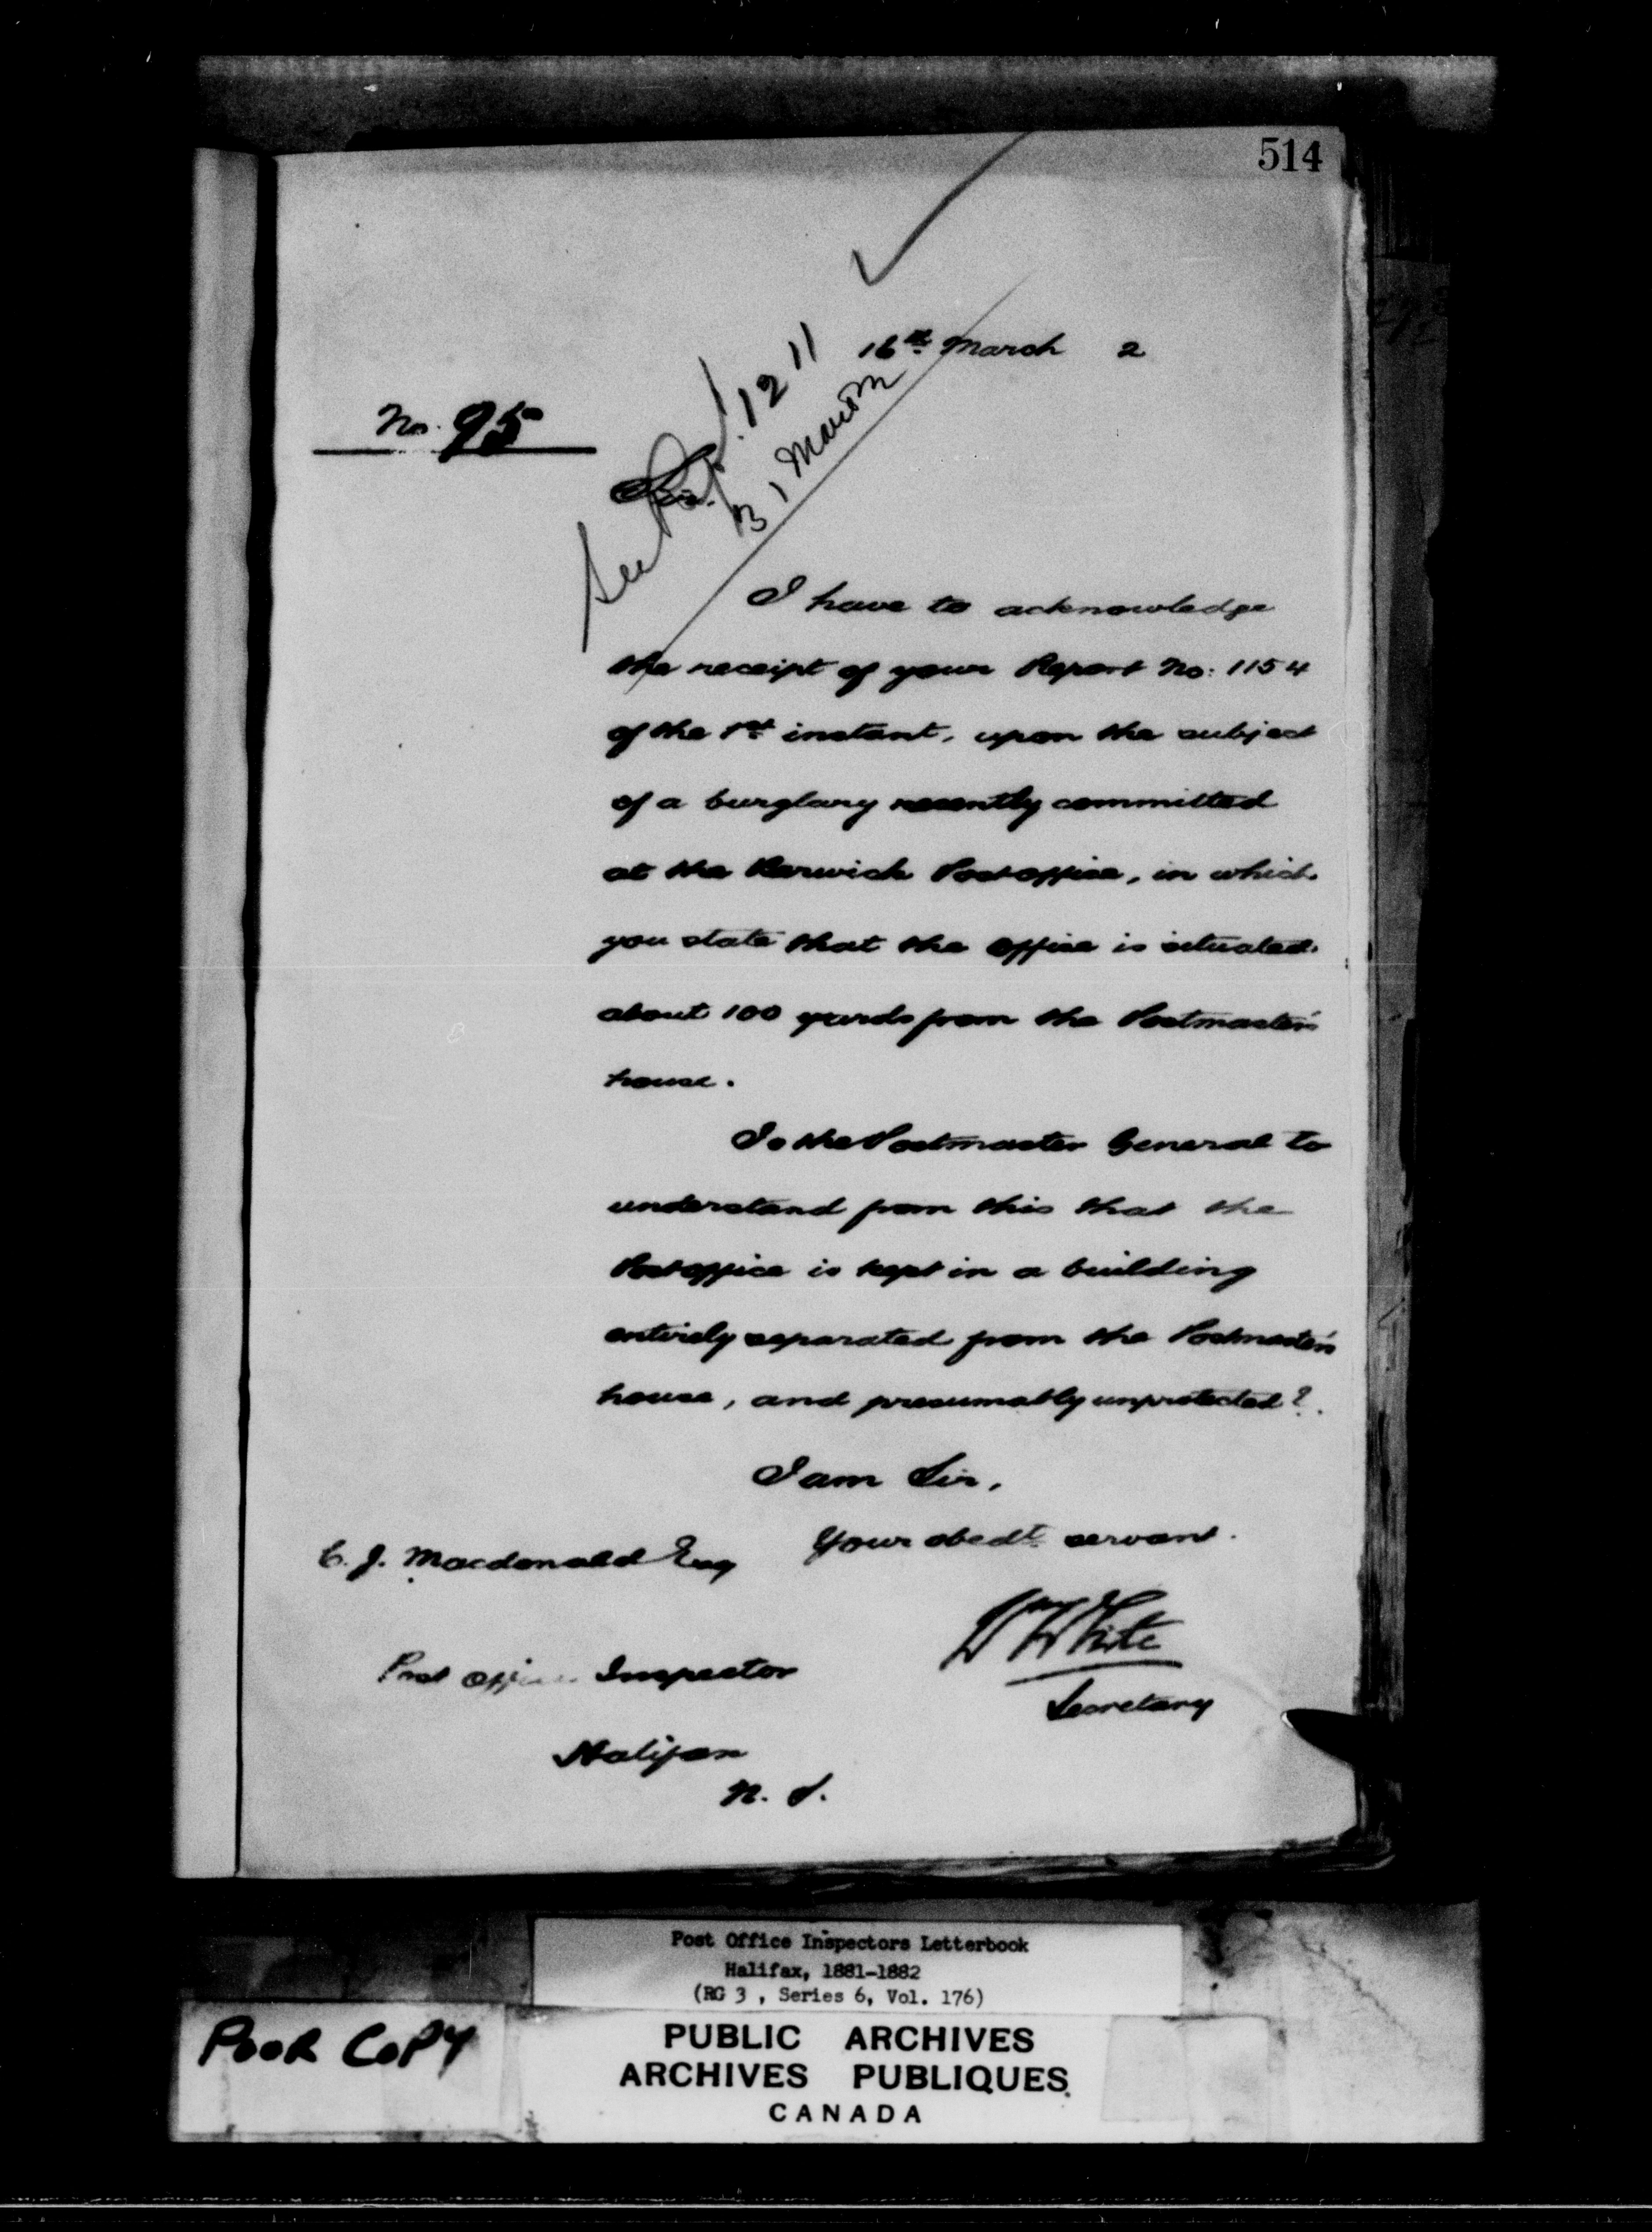 514
16th March 2
No. 95
See Rept. 1211
31 March
Sir.
I have to acknowledge
the receipt of your Report No: 1154
of the 1st instant, upon the subject
of a burglary recently committed
at the Berwick Post office, in which
you state that the office is situated
about 100 yards from the Postmaster's
house.
Is the Postmaster General to
understand from this that the
Post office is kept in a building
entirely separated from the Postmaster's
house, and presumably unprotected?
I am Sir,
Your obedt servant.
C. J. Macdonald Esq
Wm White
Post Office Inspector
Secretary
Halifax
N. S.
Post Office Inspectors Letterbook
Halifax, 1881-1882
(RG 3 , Series 6, Vol. 176)
POOR COPY
PUBLIC ARCHIVES
ARCHIVES PUBLIQUES
CANADA